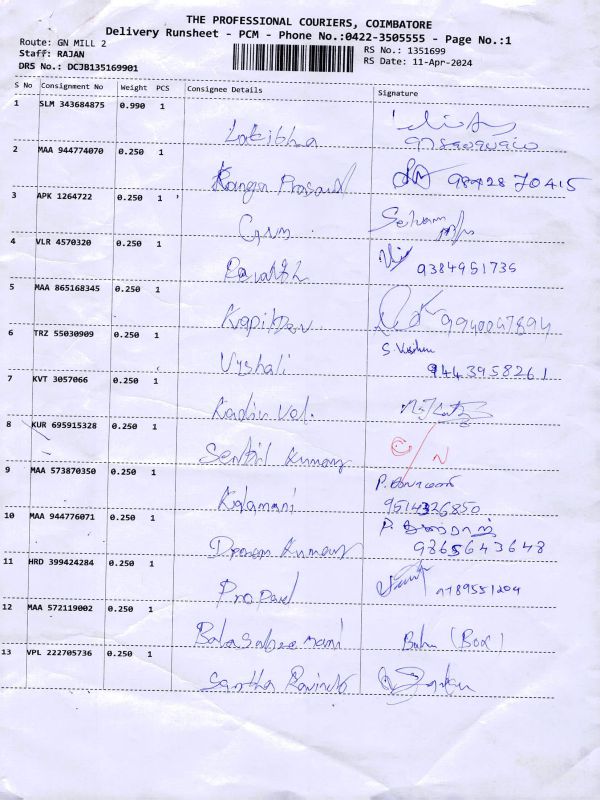 THE PROFESSIONAL COURIERS, COIMBATORE
Delivery Runsheet - PCM - Phone No.:0422-3505555 - Page No.:1
Route: GN MILL 2
Staff: RAJAN
DRS No.: DCJB135169901
RS No.: 1351699
RS Date: 11-Apr-2024
S No Consignment No Weight PCS Consignee Details Signature
1 SLM 343684875 0.990 1
2 MAA 944774070 0.250 1
Ranga Prasad 98428 70415
3 APK 1264722 0.250 1
Selvam
4 VLR 4570320 0.250 1
9384951735
5 MAA 865168345 0.250 1
KapilDev 9940047894
6 TRZ 55030909 0.250 1
Vyshali 9443958261
7 KVT 3057066 0.250 1
Kadir Vel.
8 KUR 695915328 0.250 1
Senthil Kumar
9 MAA 573870350 0.250 1
Kalamani 9514326850
10 MAA 944776071 0.250 1
Kumar 9865643648
11 HRD 399424284 0.250 1
9789551204
12 MAA 572119002 0.250 1
Balasubramani Babu (Box)
13 VPL 222705736 0.250 1
Santha